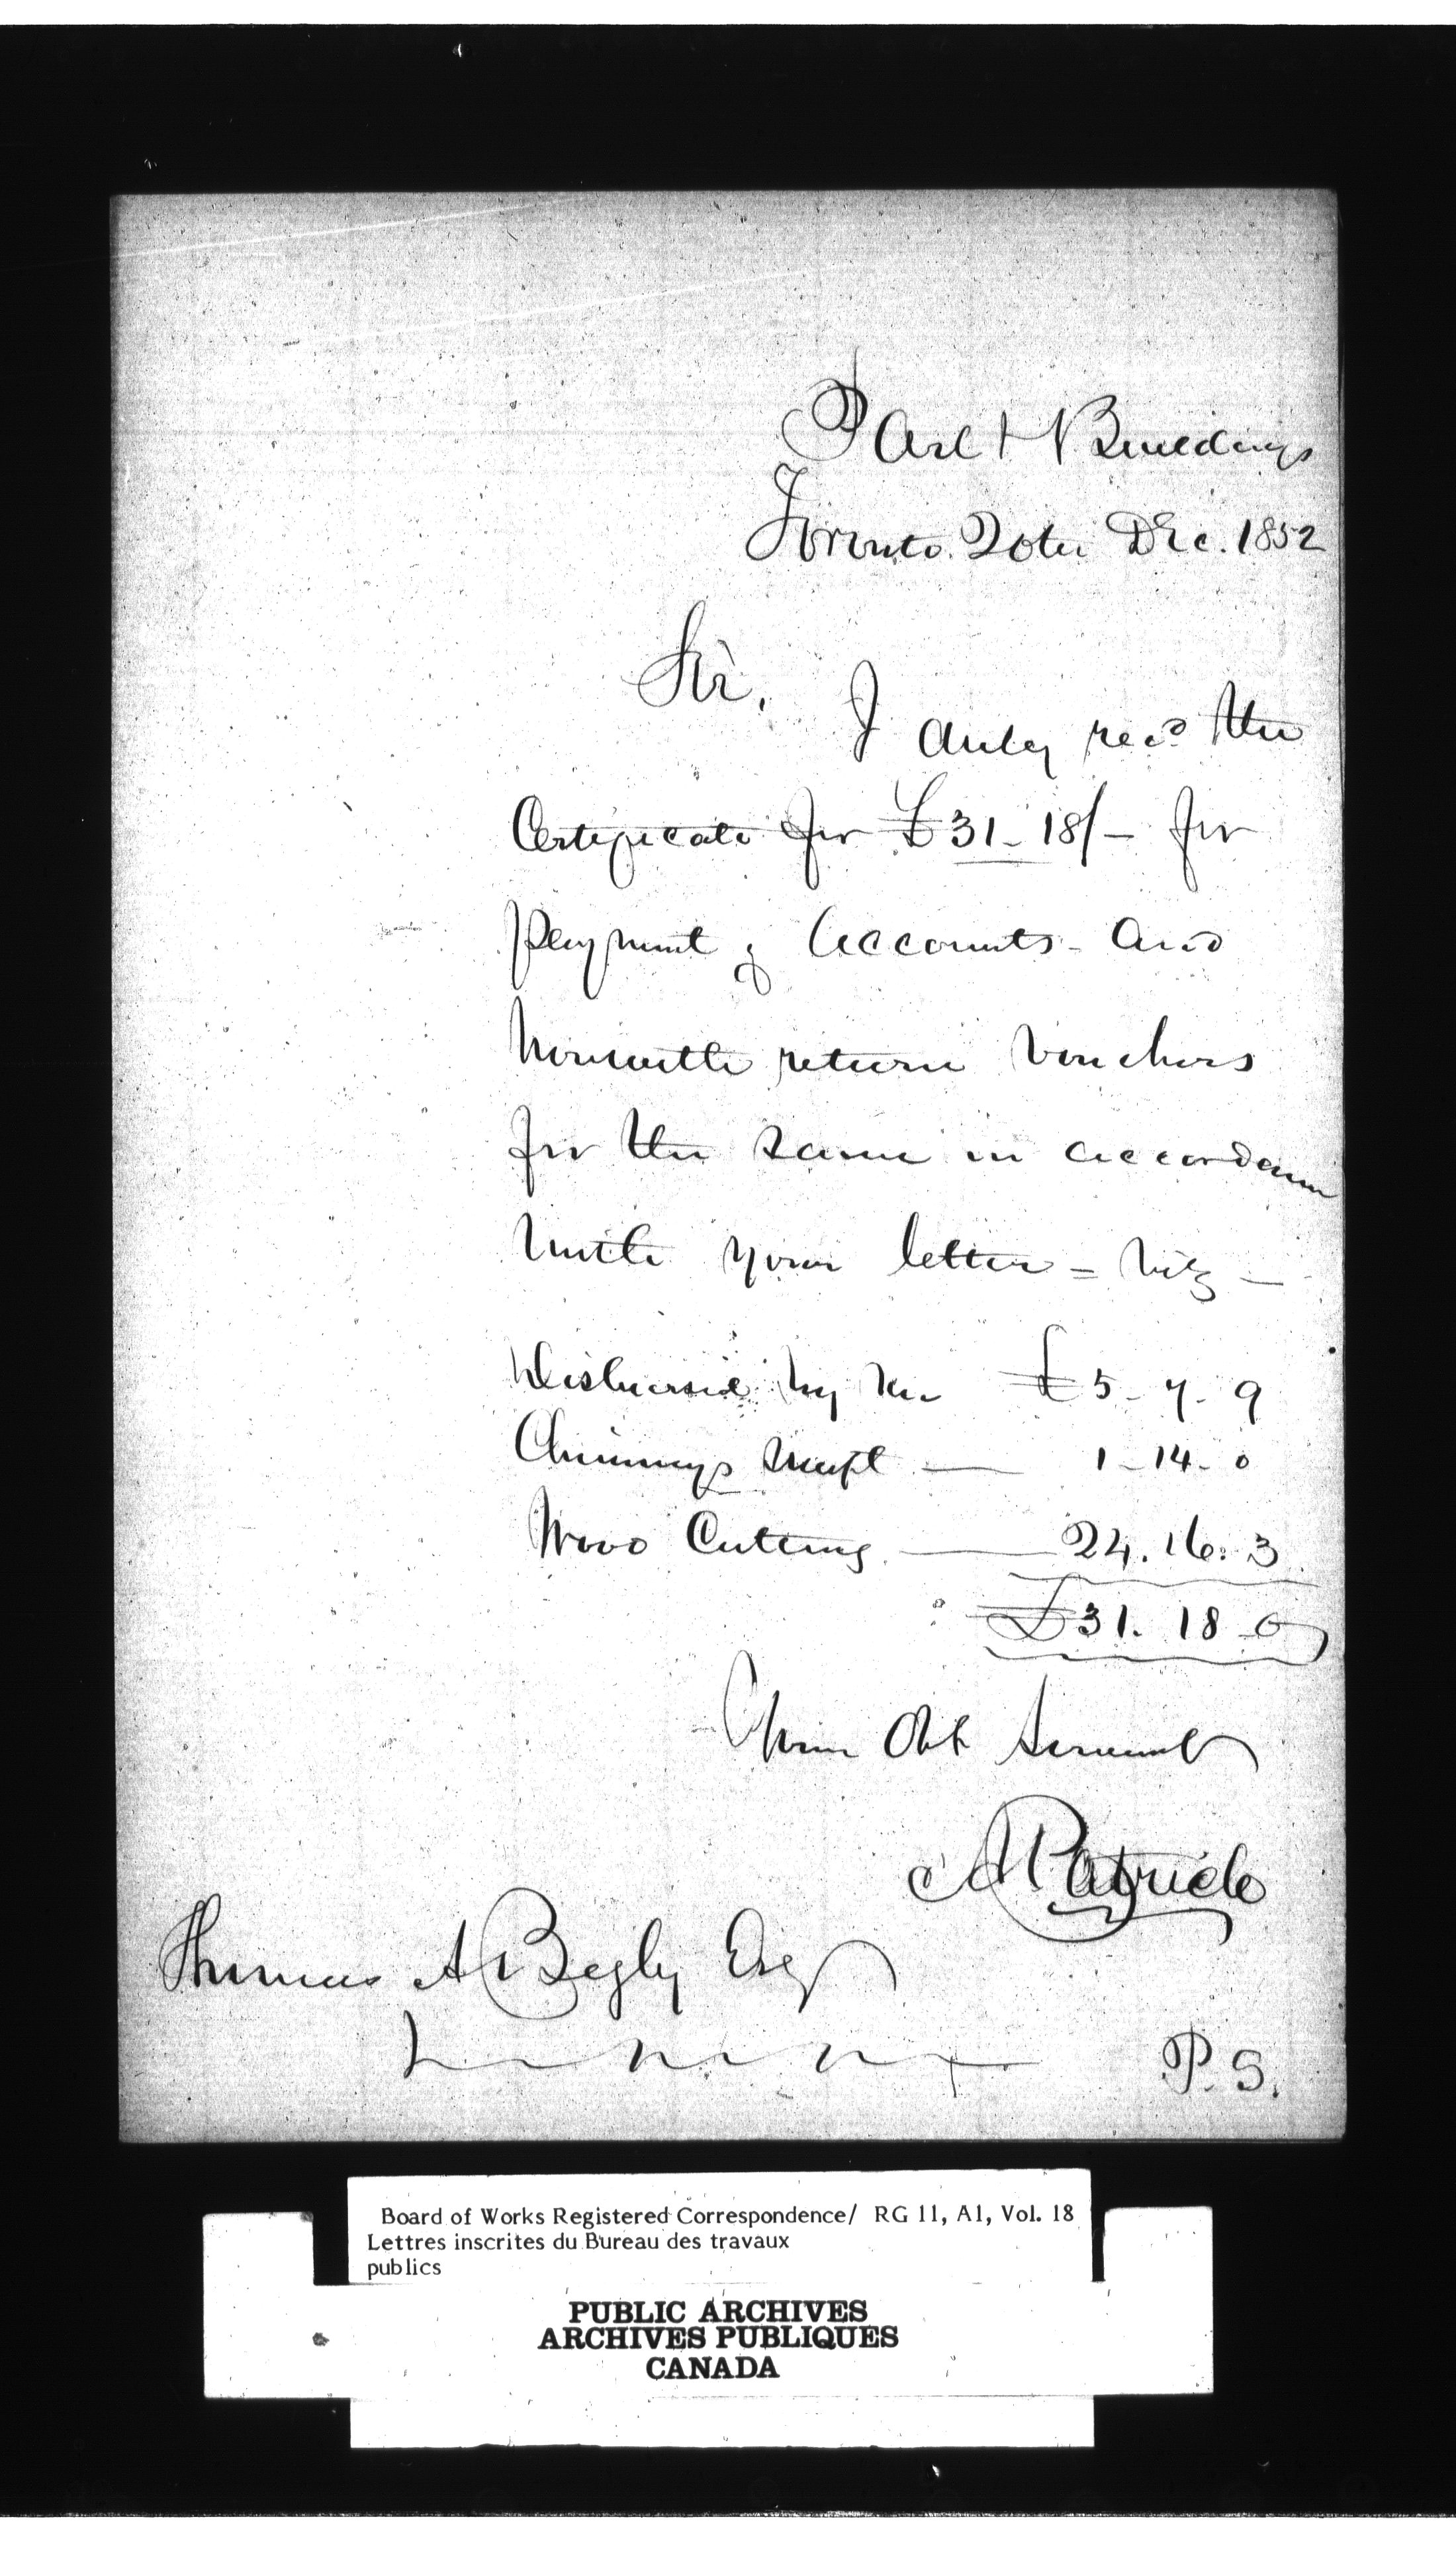 Parlt Buildings
Toronto. 20th Dec. 1852
Sir,
I duly recd the
Certificate for £31-18/- for
payment of Accounts - and
herewith return Vouchers
for the same in accordance
with your letter = viz -
Disbursed by me £5-7-9
Chimneys swept — 1-14-0
Wood Cutting — 24.16.3
£31.18-0
Your Obt Servant
A Patrick
Thomas A Begly Esq
P. S.
Board of Works Registered Correspondence/ RG 11, A1, Vol. 18
Lettres inscrites du Bureau des travaux
publics
PUBLIC ARCHIVES
ARCHIVES PUBLIQUES
CANADA